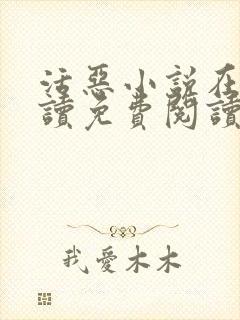 活惡小說在
讀免費閱讀
我愛木木